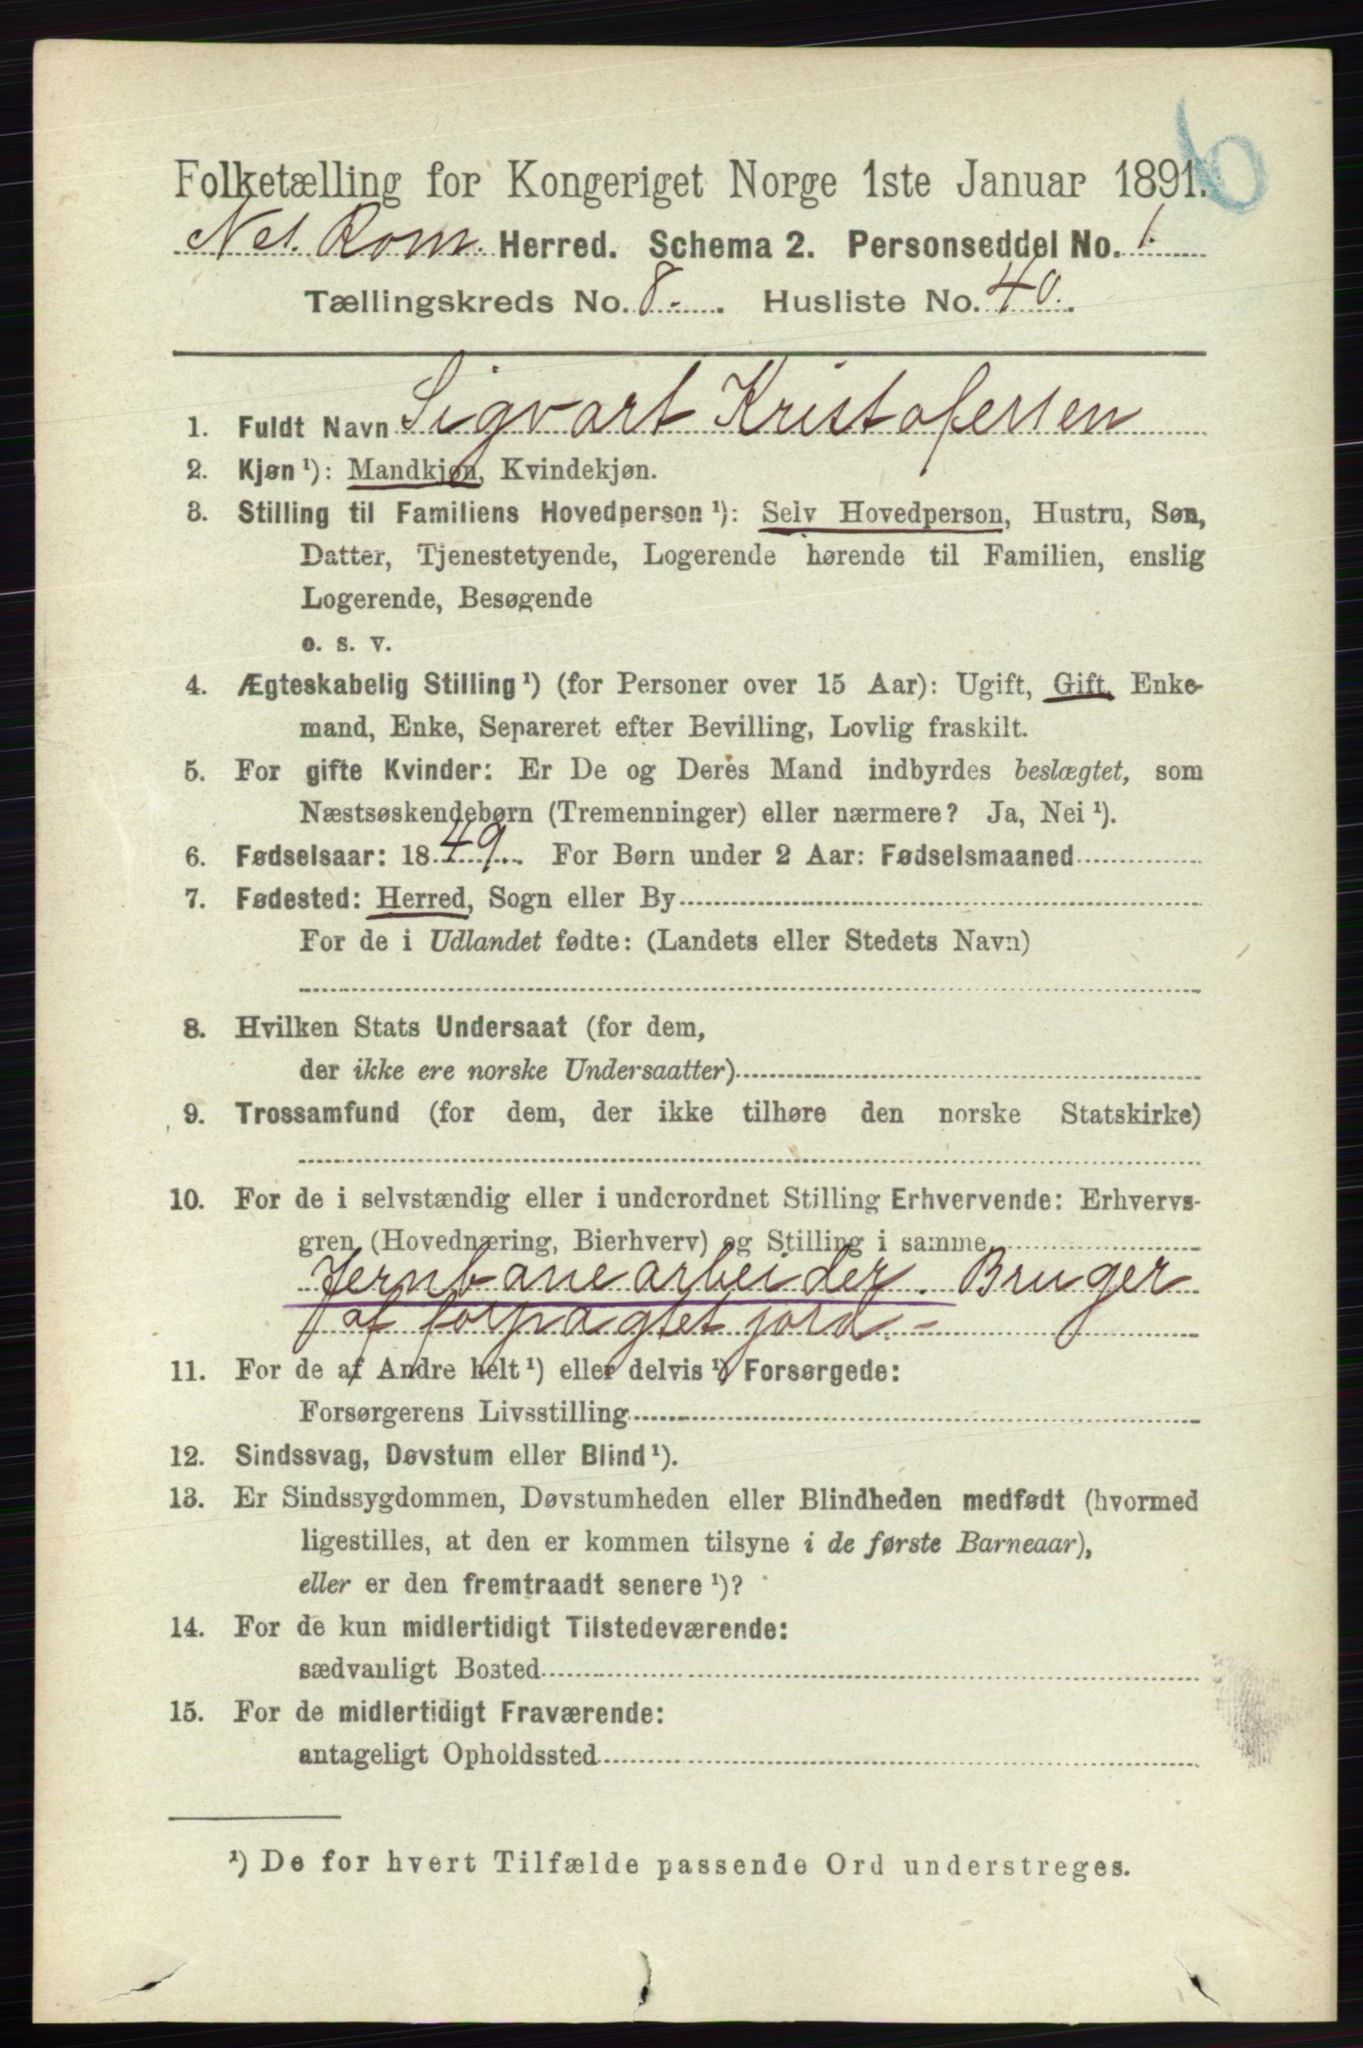 6
Folketælling for Kongeriget Norge 1ste Januar 1891.
Nes. Rom. Herred. Schema 2. Personseddel No. 1.
Tællingskreds No. 8. Husliste No. 40.
1. Fuldt Navn Sigvart Kristofersen
2. Kjøn¹): Mandkjøn, Kvindekjøn.
3. Stilling til Familiens Hovedperson¹): Selv Hovedperson, Hustru, Søn,
Datter, Tjenestetyende, Logerende hørende til Familien, enslig
Logerende, Besøgende
o. s. v.
4. Ægteskabelig Stilling¹) (for Personer over 15 Aar): Ugift, Gift, Enke-
mand, Enke, Separeret efter Bevilling, Lovlig fraskilt.
5. For gifte Kvinder: Er De og Deres Mand indbyrdes beslægtet, som
Næstsøskendebørn (Tremenninger) eller nærmere? Ja, Nei¹).
6. Fødselsaar: 1849. For Børn under 2 Aar: Fødselsmaaned
7. Fødested: Herred, Sogn eller By
For de i Udlandet fødte: (Landets eller Stedets Navn)
8. Hvilken Stats Undersaat (for dem,
der ikke ere norske Undersaatter)
9. Trossamfund (for dem, der ikke tilhøre den norske Statskirke)
10. For de i selvstændig eller i underordnet Stilling Erhvervende: Erhvervs-
gren (Hovednæring, Bierhverv) og Stilling i samme
Jernbanearbeider. Bruger
af forpagtet jord. -
11. For de af Andre helt¹) eller delvis¹) Forsørgede:
Forsørgerens Livsstilling
12. Sindssvag, Døvstum eller Blind¹).
13. Er Sindssygdommen, Døvstumheden eller Blindheden medfødt (hvormed
ligestilles, at den er kommen tilsyne i de første Barneaar),
eller er den fremtraadt senere¹)?
14. For de kun midlertidigt Tilstedeværende:
sædvanligt Bosted
15. For de midlertidigt Fraværende:
antageligt Opholdssted
¹) De for hvert Tilfælde passende Ord understreges.